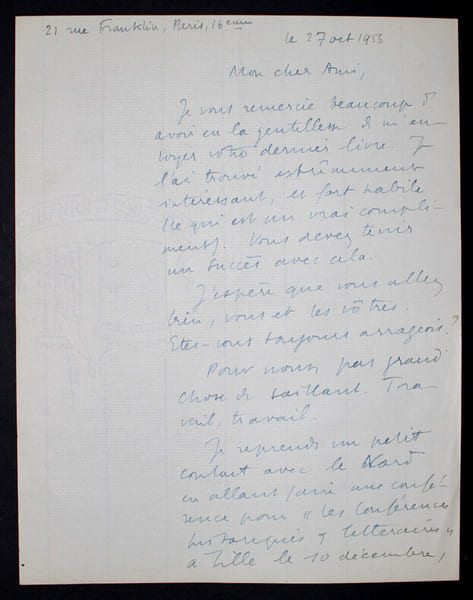 21 rue Franklin, Paris, 16eme
le 27 oct 1956
Mon cher Ami,
Je vous remercie beaucoup d'
avoir eu la gentillesse de m'en-
voyer votre dernier livre. Je
l'ai trouvé extrêmement
intéressant, et fort habile
(ce qui est un vrai compli-
ment). Vous devez tenir
un succès avec cela.
J'espère que vous allez
bien, vous et les vôtres.
Etes-vous toujours arrageois ?
Pour nous, pas grand
chose de saillant. Tra-
vail, travail.
Je reprends un petit
contact avec le Nord
en allant faire une confé-
rence pour "les Conférences
historiques & litteraires"
à Lille le 10 décembre,